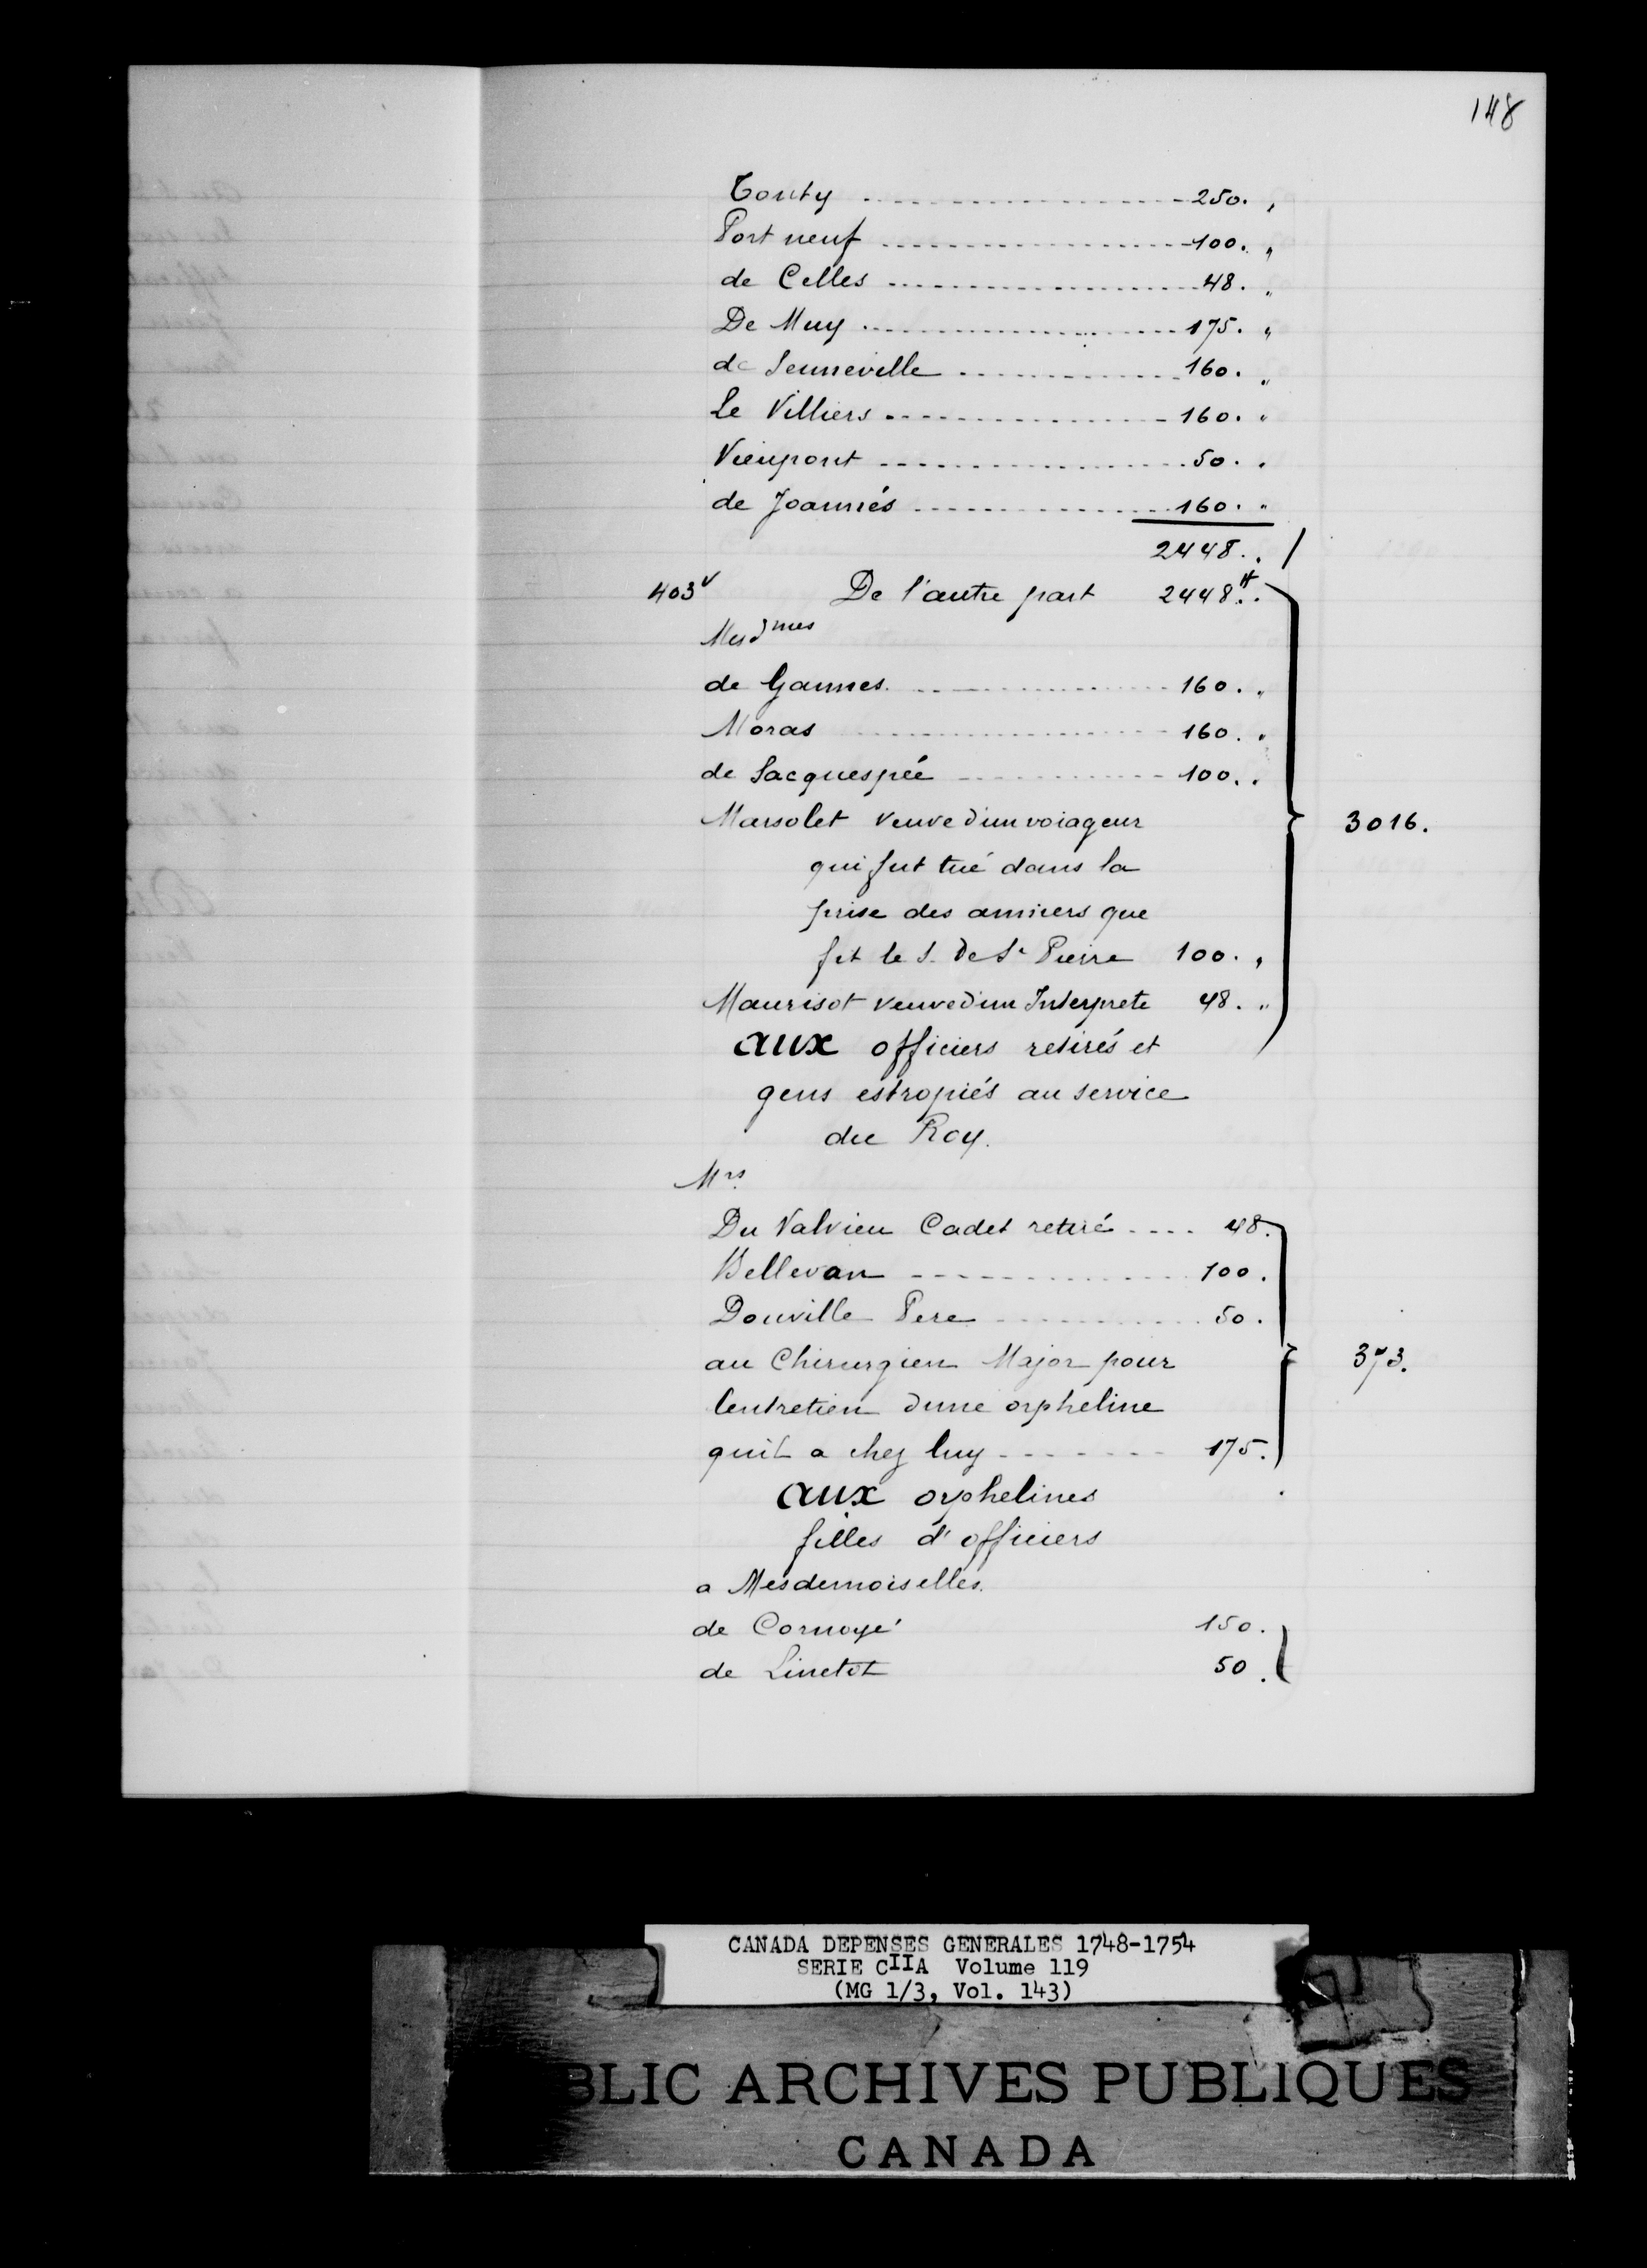 148
Tonty ........ 250. "
Port neuf ........ 100. "
de Celles ........ 48. "
De Muy ........ 175. "
de Senneville ........ 160. "
Le Villiers ........ 160. "
Vieupont ........ 50. "
de Joannés ........ 160. "
2448. . /
403v De l'autre part 2448.# .
Mesdmes
de Gannes ........ 160. "
Moras ........ 160. "
de Lacquespée ........ 100. .
Marsolet veuve d'un voiageur
qui fut tué dans la
prise des anniers que
fit le S. De St Pierre 100. "
3016.
Maurisot veuve d'un Interprete 48. "
aux officiers retirés et
gens estropiés au service
du Roy.
Mrs
Du Valvieu Cadet retiré .... 48.
Bellevau ........ 100.
Douville Pere ........ 50.
au Chirurgien Major pour
373.
lentretien dune orpheline
quil a chez luy ....... 175.
aux orphelines
filles d'officiers
a Mesdemoiselles.
de Cornoyé 150.
de Linetot 50.
CANADA DEPENSES GENERALES 1748-1754
SERIE CIIA Volume 119
(MG 1/3, Vol. 143)
BLIC ARCHIVES PUBLIQUES
CANADA